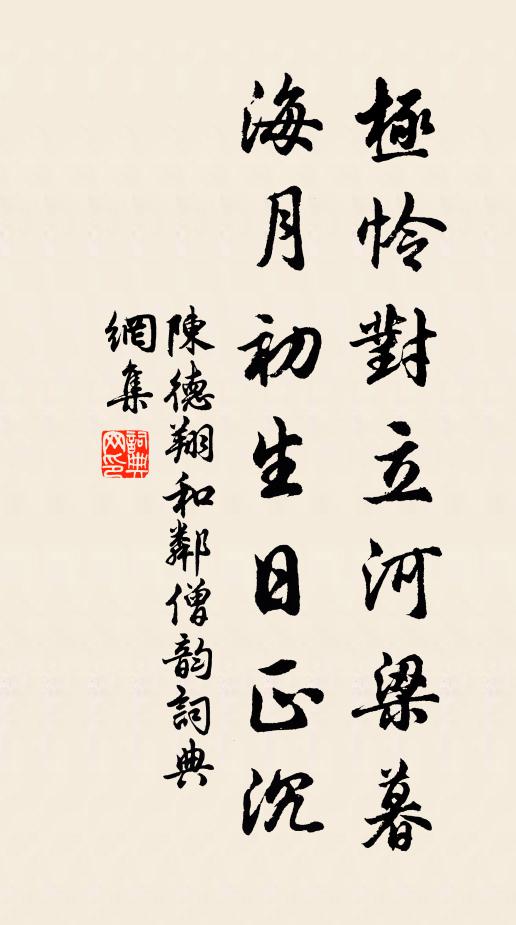 極怜對立河梁暮
海月初生日正沉
陳德翔和鄰僧韵詞典
網集
詞典
网印